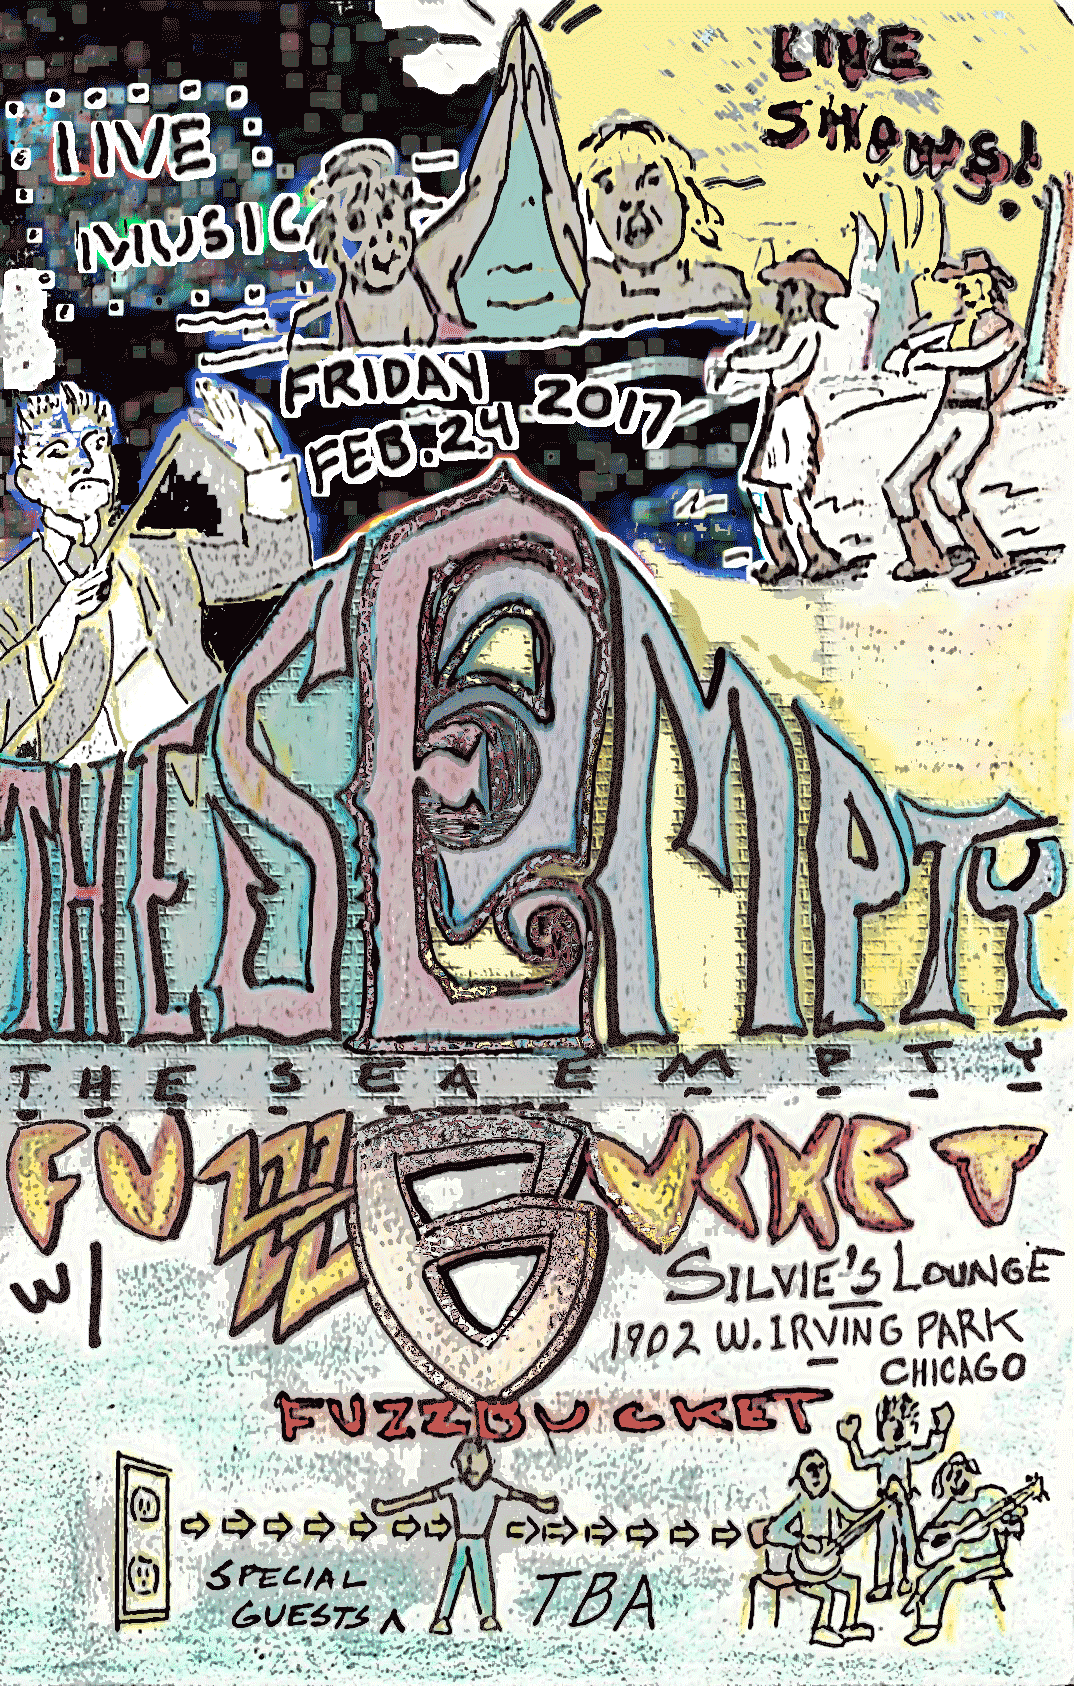 LIVE
MUSIC
LIVE
SHOWS!
FRIDAY
FEB. 24 2017
THE SEA EMPTY
THE SEA EMPTY
FUZZBUCKET
W/
SILVIE'S LOUNGE
1902 W. IRVING PARK
CHICAGO
FUZZBUCKET
SPECIAL
GUESTS
TBA